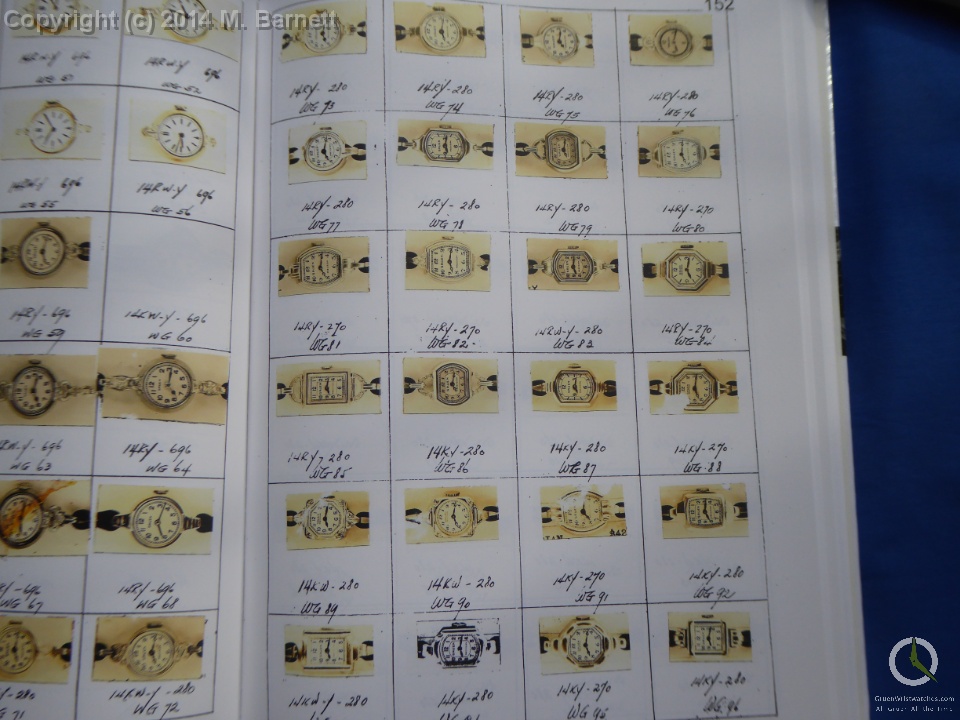 Copyright (c) 2014 M. Barnett
152
14RW-Y 696
WG 52
14RW-Y 696
WG 55
14RW-Y 696
WG 56
14RY-696
WG 59
14KW-Y-696
WG 60
WG 63
14RY-696
WG 64
WG 67
14RY-696
WG 68
WG 71
14KW-Y-280
WG 72
14RY-280
WG 73
14RY-280
WG 74
14RY-280
WG 75
14RY-280
WG 76
14RY-280
WG 77
14RY-280
WG 78
14RY-280
WG 79
14RY-270
WG 80
14RY-270
WG 81
14RY-270
WG 82
14RW-Y-280
WG 83
14RY-270
WG 84
14RY-280
WG 85
14KY-280
WG 86
14KY-280
WG 87
14KY-270
WG 88
14KW-280
WG 89
14KW-280
WG 90
14KY-270
WG 91
14KY-280
WG 92
14KW-Y-280
14KY-280
14KY-270
WG 95
14KY-280
WG 96
GruenWristwatches.com
All Gruen All the Time